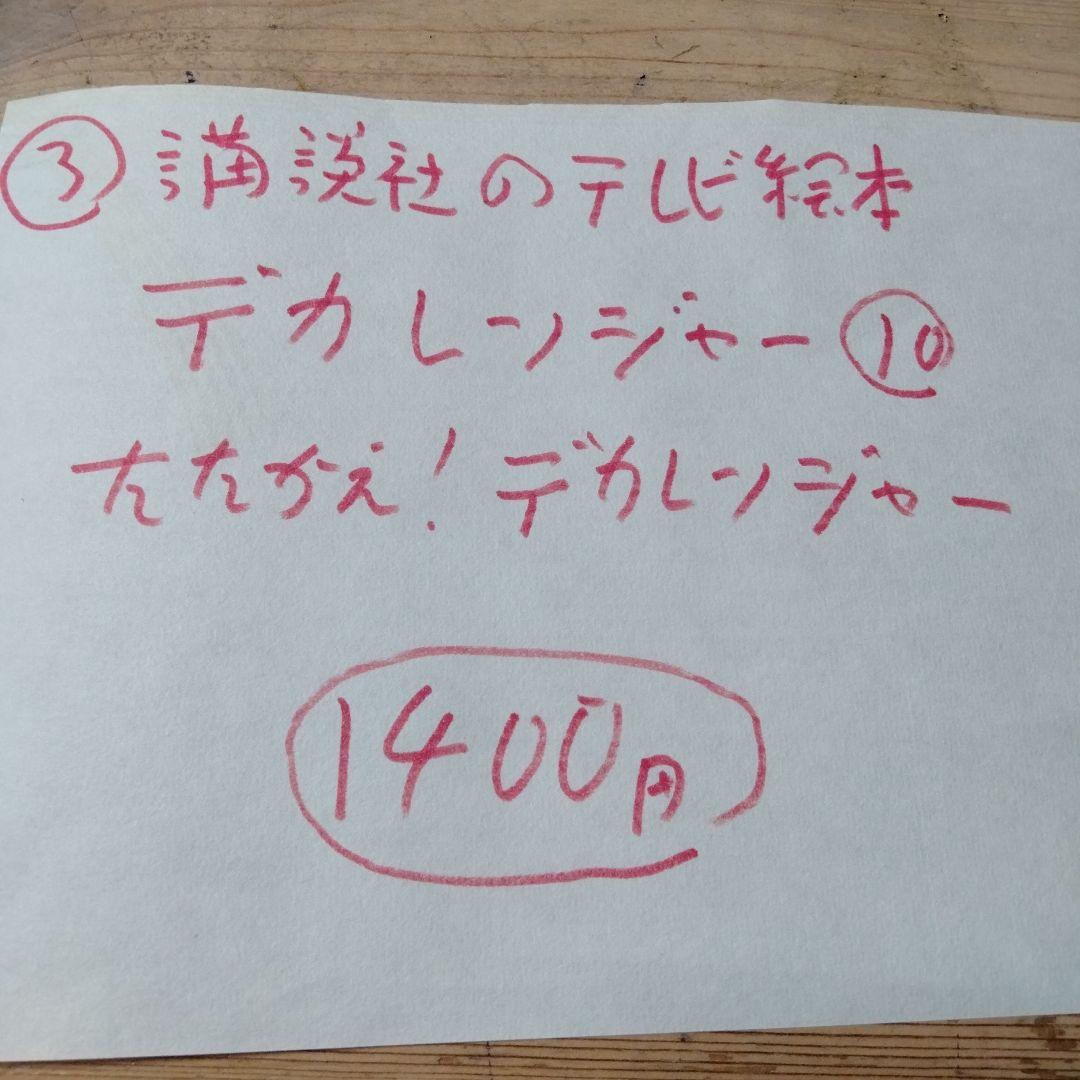 ③ 講談社のテレビ絵本
デカレンジャー⑩
たたかえ!デカレンジャー
1400円